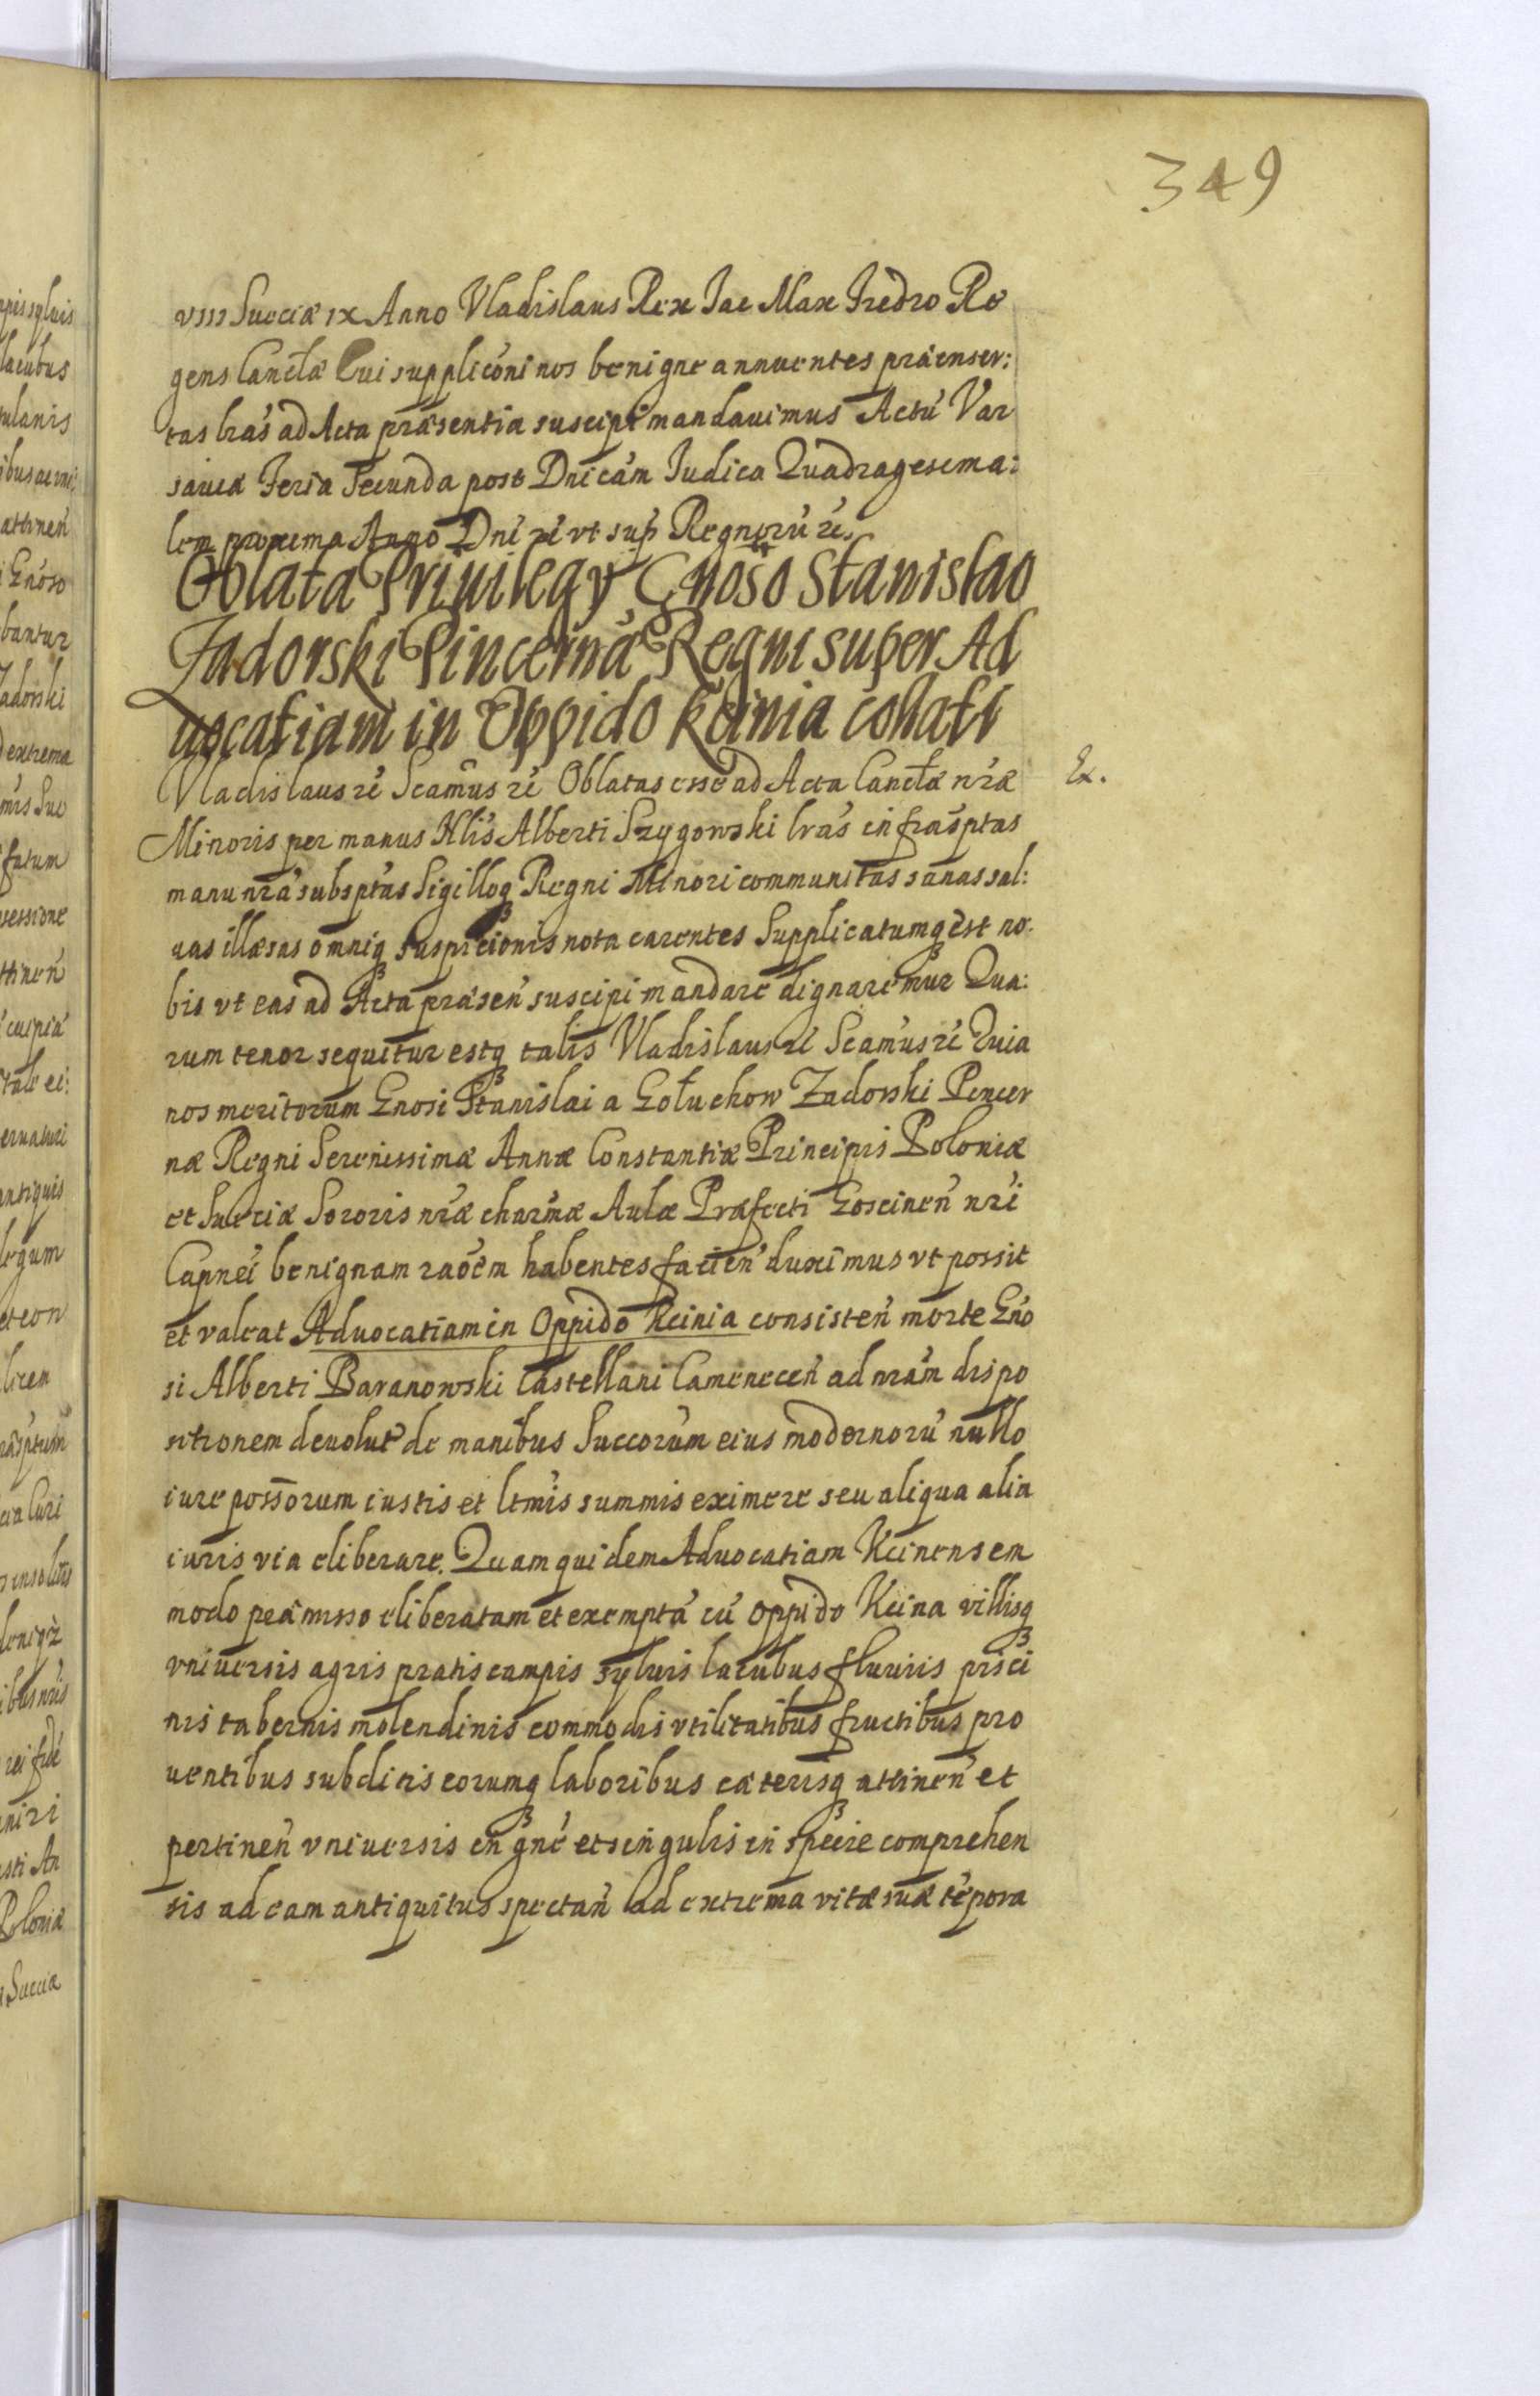 349
VIII Sueciæ IX Anno Vladislaus Rex Jac Max Fredro Re
gens Cancłæ Cui supplicôni nos benigne annuentes præinser:
tas lrás ad Acta præsentia suscipi mandauimus Actú Var
sauiæ Feria Secunda post Dnicám Iudica Quadragesima:
lem proxima Anno Dni zć vt sup Regnorú zć.
Oblata Priuilegÿ Gnoso Stanislao
Zadorski Pincernæ Regni super Ad
uocatiam in Oppido Kcinia collati
Vladislaus zć Scamús zć Oblatas esse ad Acta Cancłæ nræ
Ex.
Minoris per manus Nlis Alberti Szygowski lrás infrasptas
manu nrá subsptas Sigilloq Regni Minori communitas sanas sal:
uas illæsas omniq suspicionis nota carentes Supplicatumq èst no:
bis vt eas ad Acta præseń suscipi mandare dignaremur Qua:
rum tenor sequitur estq talis Vladislaus zć Scamús zć Quia
nos meritorum Gnosi Stanislai a Gołuchow Zadorski Pincer
næ Regni Serenissimæ Annæ Constantiæ Principis Poloniæ
et Sueciæ Sororis nræ charmæ Aulæ Præfecti Goscineń nri
Capnei benignam raóem habentes facień duximus vt possit
et valeat Aduocatiam in Oppido Kcinia consisteń morte Gno
si Alberti Baranowski Castellani Cameneceń ad nrám dispo
sitionem deuolut de manibus Succorúm eius modernorú nullo
iure possorum iustis et ltmis summis eximere seu aliqua alia
iuris via eliberare. Quam quidem Aduocatiam Kcinensem
modo præmisso eliberatam et exemptá cú oppido Kcina villisq
vniuersis agris pratis campis syluis lacubus fluuiis pisci
nis tabernis molendinis commodis vtilitatibus fructibus pro
uentibus subditis eorumq laboribus cæterisq attineń et
pertineń vniuersis in gne et singulis in specie comprehen
sis ad eam antiquitus spectań ad extrema vitæ suæ tépora